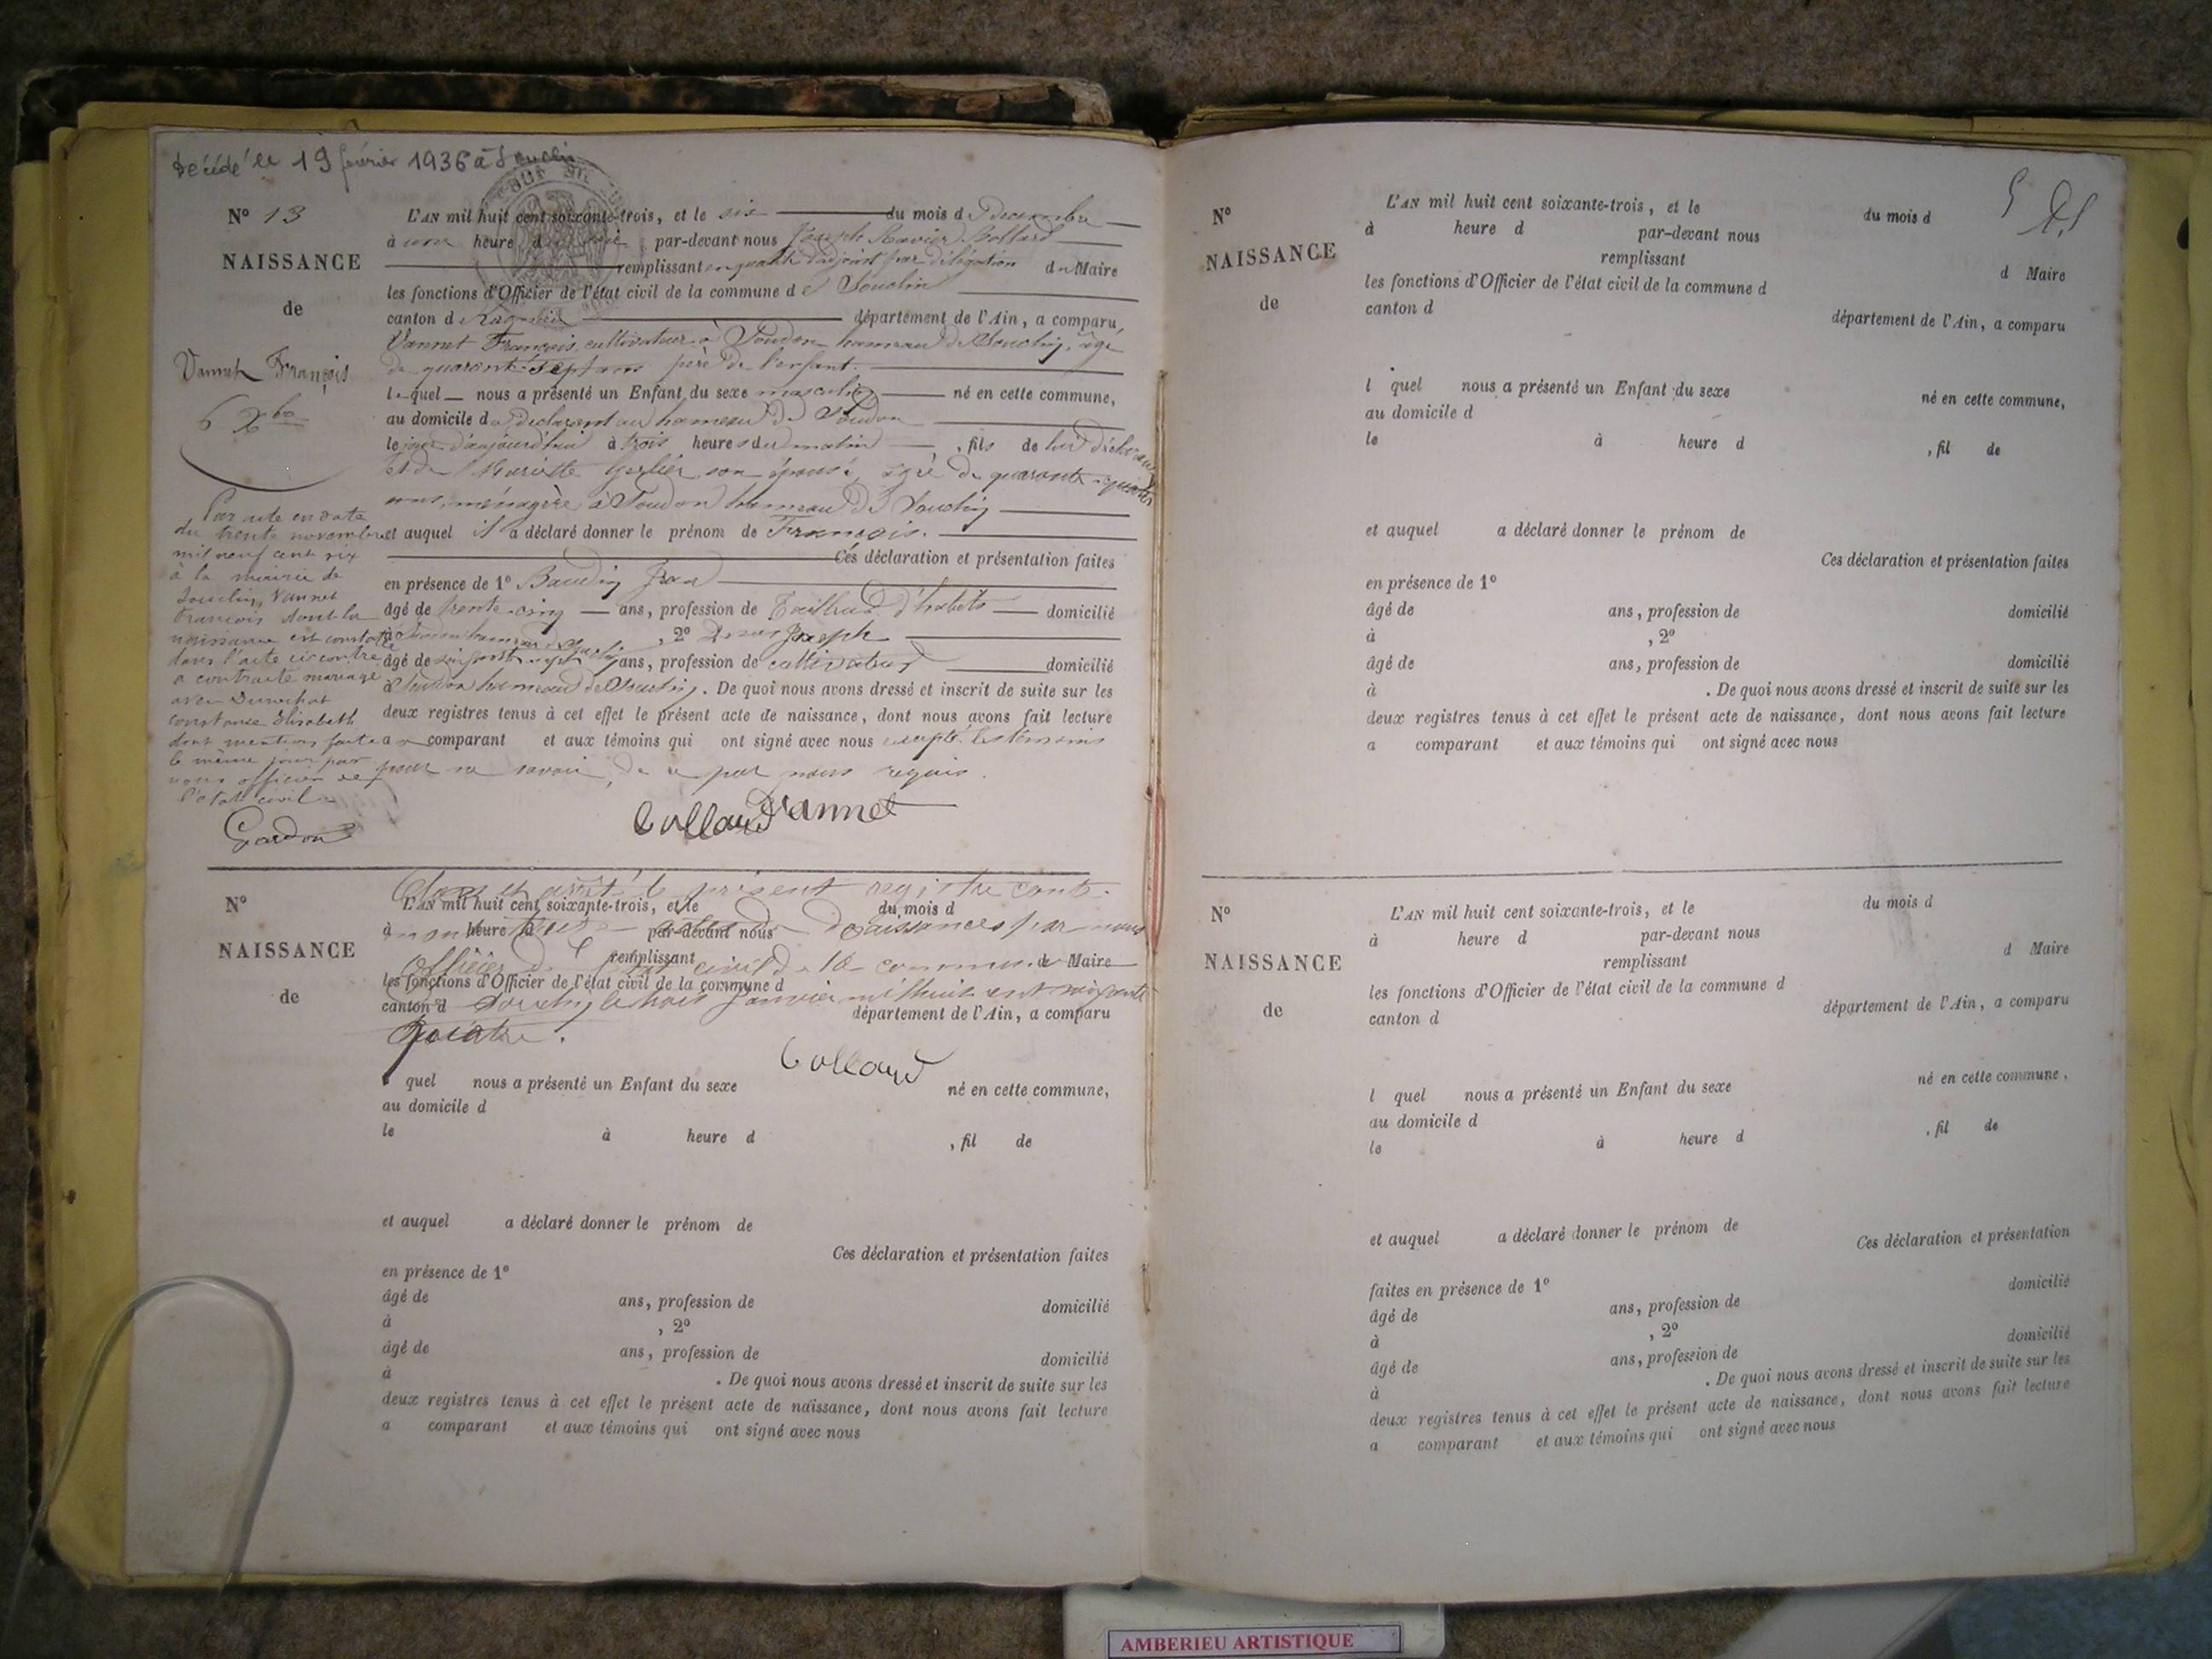 Décédé le 19 février 1936 à Souclin
N° 13
NAISSANCE
de
Vannet François
6 Xbre
L'AN mil huit cent soixante-trois, et le six du mois d Decembre
à une heure d soir par-devant nous Joseph Xavier Collard
remplissant en qualité d'adjoint par délégation du Maire
les fonctions d'Officier de l'état civil de la commune de Souclin
canton d Lagnieu département de l'Ain, a comparu
Vannet François, cultivateur à Soudon hameau de Souclin, âgé
de quarante-sept ans père de l'enfant.
lequel nous a présenté un Enfant du sexe masculin né en cette commune,
au domicile du Déclarant au hameau de Soudon
le jour d'aujourd'hui à trois heures du matin, fils de lui déclarant
et de Mariette Gerlier son épouse, âgée de quarante-quatre
ans, ménagère à Soudon hameau de Souclin
et auquel il a déclaré donner le prénom de François.
Ces déclaration et présentation faites
en présence de 1° Baudin Jean
âgé de trente-cinq ans, profession de Tailleur d'habits domicilié
à Soudon hameau de Souclin, 2° Joseph
âgé de ans, profession de cultivateur domicilié
à Soudon hameau de Souclin. De quoi nous avons dressé et inscrit de suite sur les
deux registres tenus à cet effet le présent acte de naissance, dont nous avons fait lecture
au comparant et aux témoins qui ont signé avec nous excepté les témoins
pour ne savoir, de ce par nous requis.
Collard Vannet
Par acte en date
du trente novembre
mil neuf cent dix
à la mairie de
Souclin, Vannet
François dont la
naissance est constatée
dans l'acte ci contre
a contracté mariage
avec
Constance Elisabeth
dont mention faite
le même jour par
nous officier de
l'état civil
Gardon
N°
NAISSANCE
de
Clos et arrêté le présent registre conte-
L'AN mil huit cent soixante-trois, et le du mois d
à heure d par-devant nous
nant treize actes de Naissances par nous
remplissant d Maire
Officier de l'état civil de la commune de
les fonctions d'Officier de l'état civil de la commune d
canton d
Souclin, le trois Janvier mil huit cent soixante
département de l'Ain, a comparu
quatre.
Collard
l quel nous a présenté un Enfant du sexe né en cette commune,
au domicile d
le à heure d , fil de
et auquel a déclaré donner le prénom de
Ces déclaration et présentation faites
en présence de 1°
âgé de ans, profession de domicilié
à , 2°
âgé de ans, profession de domicilié
à . De quoi nous avons dressé et inscrit de suite sur les
deux registres tenus à cet effet le présent acte de naissance, dont nous avons fait lecture
a comparant et aux témoins qui ont signé avec nous
N°
NAISSANCE
de
L'AN mil huit cent soixante-trois, et le du mois d
à heure d par-devant nous
remplissant d Maire
les fonctions d'Officier de l'état civil de la commune d
canton d département de l'Ain, a comparu
l quel nous a présenté un Enfant du sexe né en cette commune,
au domicile d
le à heure d , fil de
et auquel a déclaré donner le prénom de
Ces déclaration et présentation faites
en présence de 1°
âgé de ans, profession de domicilié
à , 2°
âgé de ans, profession de domicilié
à . De quoi nous avons dressé et inscrit de suite sur les
deux registres tenus à cet effet le présent acte de naissance, dont nous avons fait lecture
a comparant et aux témoins qui ont signé avec nous
N°
NAISSANCE
de
L'AN mil huit cent soixante-trois, et le du mois d
à heure d par-devant nous
remplissant d Maire
les fonctions d'Officier de l'état civil de la commune d
canton d département de l'Ain, a comparu
l quel nous a présenté un Enfant du sexe né en cette commune,
au domicile d
le à heure d , fil de
et auquel a déclaré donner le prénom de
Ces déclaration et présentation
faites en présence de 1° domicilié
âgé de ans, profession de
à , 2° domicilié
âgé de ans, profession de
à . De quoi nous avons dressé et inscrit de suite sur les
deux registres tenus à cet effet le présent acte de naissance, dont nous avons fait lecture
a comparant et aux témoins qui ont signé avec nous
AMBERIEU ARTISTIQUE